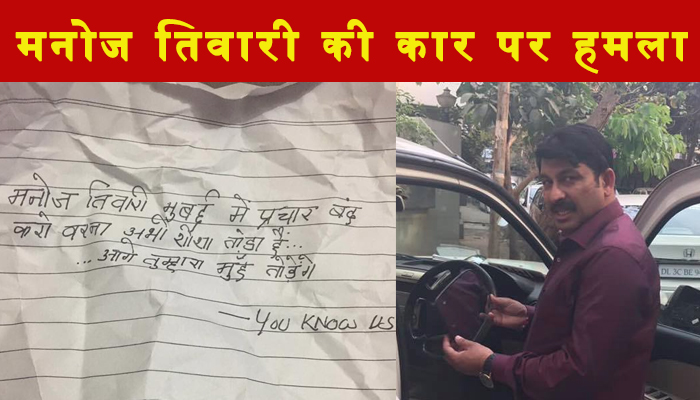 मनोज तिवारी की कार पर हमला
मनोज तिवारी मुबई में प्रचार बंद
करो वरना अभी शीशा तोडा हैं...
...आगे तुम्हारा मुँह तोड़ेंगे
— YOU KNOW US
DL 3C BE